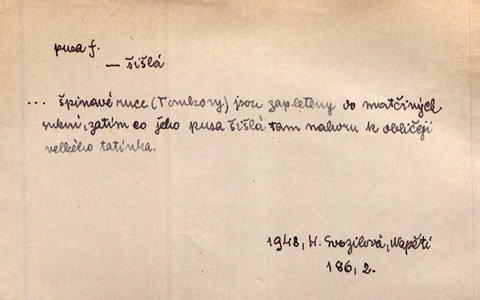 pusa f.
— šišlá
... špinavé ruce (Tomkovy) jsou zapleteny do matčiných
sukní, zatím co jeho pusa šišlá tam nahoru k obličeji
velkého tatínka.
1948, H. Svozilová, Napětí
186, 2.